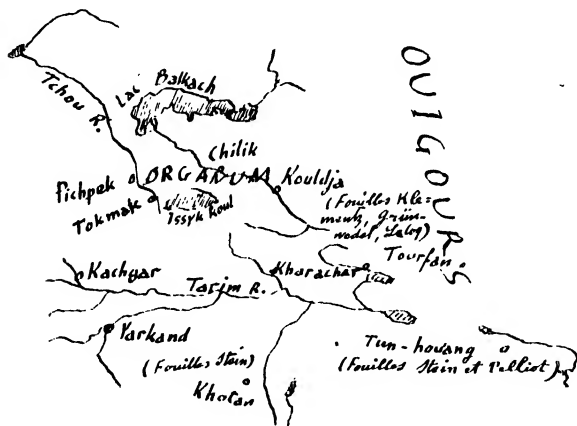 OUIGOURS
Lac Balkach
Tchou R.
Chilik
Pichpek
ORGANUM
Kouldja
Tokmak
Issyk Koul
(Fouilles Kle-
mentz, Grün-
wedel, Lecoq)
Tourfan
Kharachar
Kachgar
Tarim R.
Yarkand
(Fouilles Stein)
Khotan
Tun-houang
(Fouilles Stein et Pelliot)